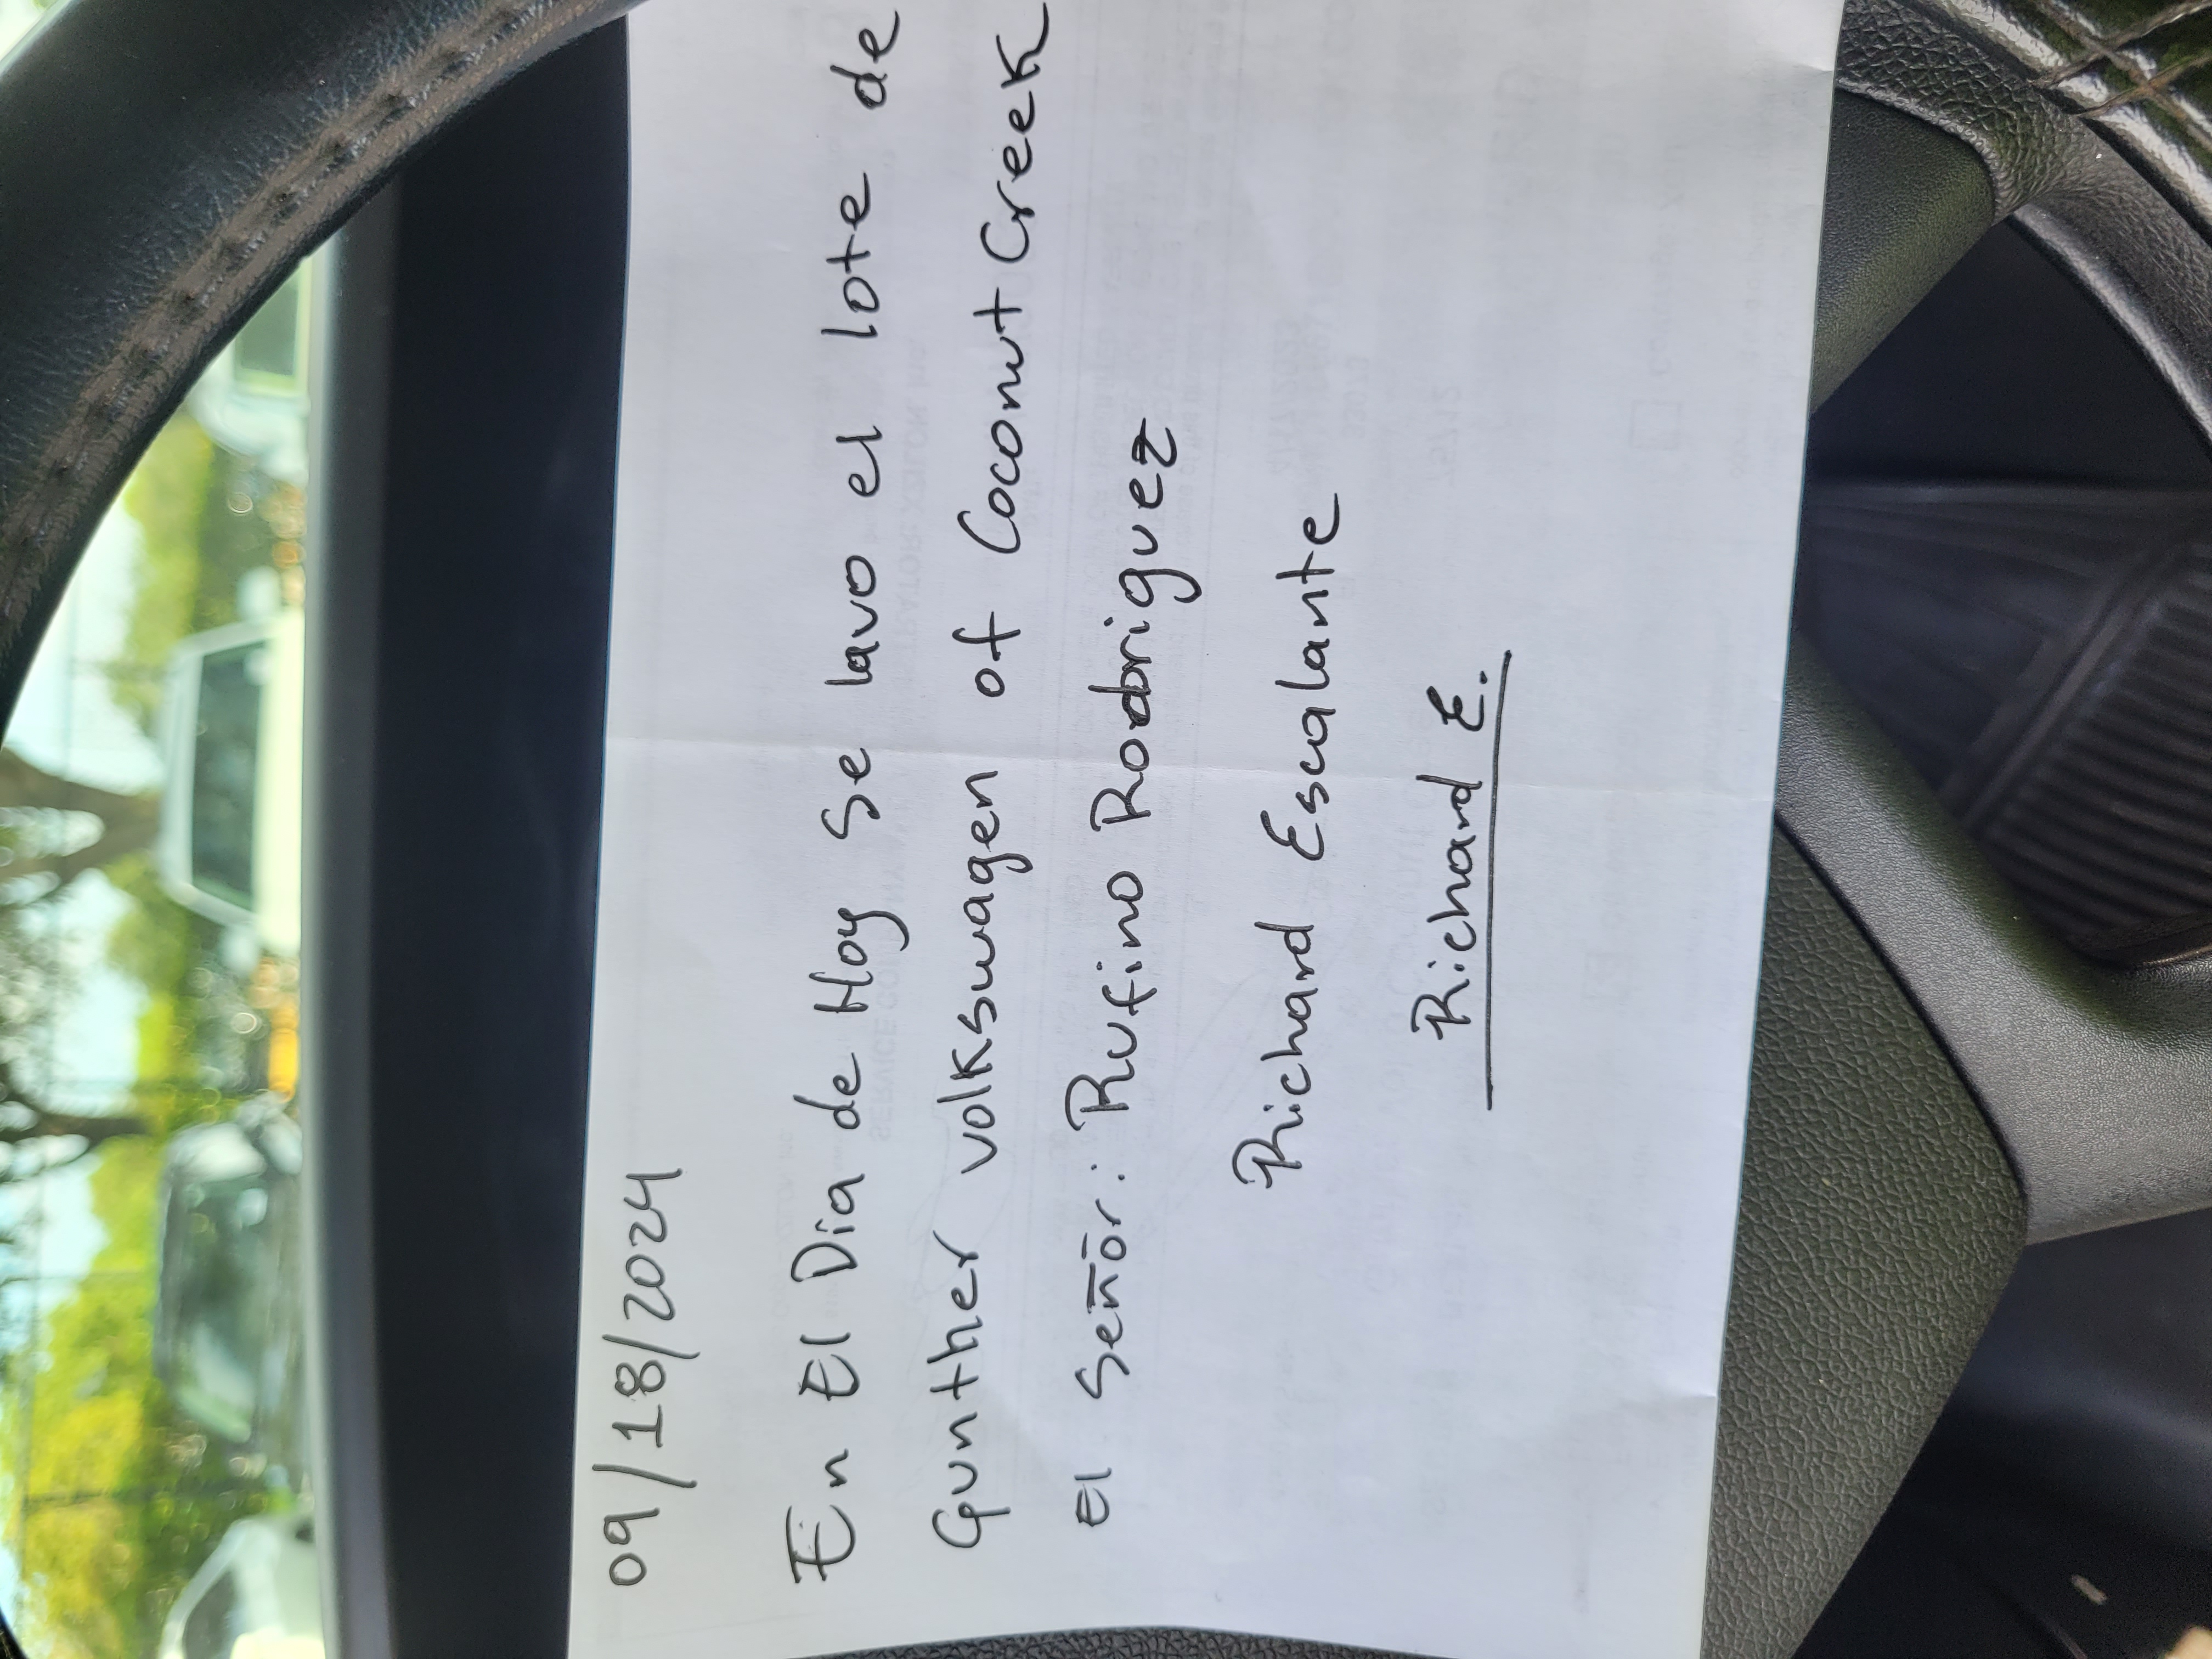 09/18/2024
En El Dia de Hoy Se lavo el lote de
Gunther volkswagen of Coconut Creek
El Señor: Rufino Rodriguez
Richard Escalante
Richard E.